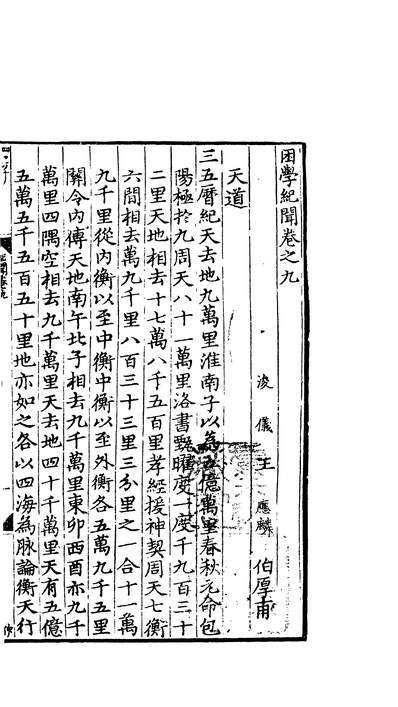 困學紀聞卷之九
浚儀王 應麟 伯厚甫
天道
三五曆紀天去地九萬里淮南子以為五億萬里春秋元命包
陽極於九周天八十一萬里洛書甄曜度一度千九百三十
二里天地相去十七萬八千五百里孝經援神契周天七衡
六間相去萬九千里八百三十三里三分里之一合十一萬
九千里從內衡以至中衡中衡以至外衡各五萬九千五里
關令內傳天地南午北子相去九千萬里東卯西酉亦九千
萬里四隅空相去九千萬里天去地四十千萬里天有五億
五萬五千五百五十里地亦如之各以四海為脉論衡天行